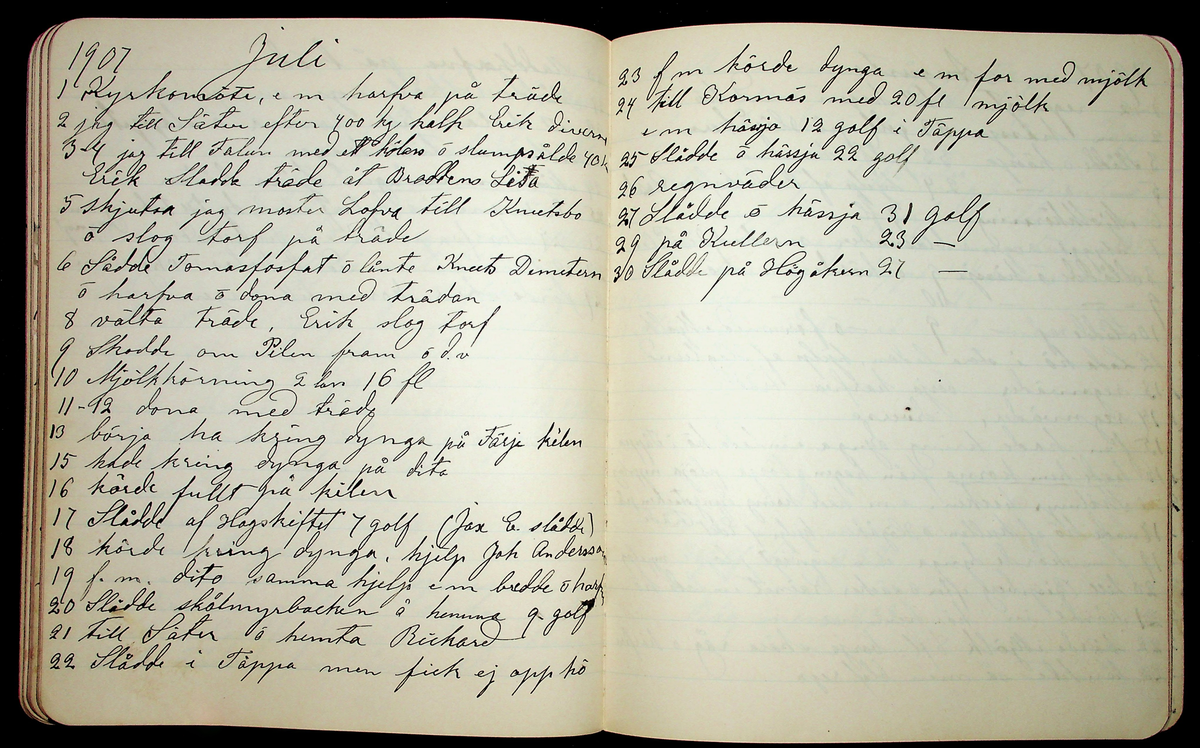 1907 Juli
1 Kyrkomöte, e m harfva på träde
2 jag till Säter efter 400 kg kalk Erik diverse
3-4 jag till Falun med ett kolass ö slumpsålde 40 kr
Erik Sladda träde åt Brostens Lisa
5 skjutsa jag moster Lofva till Knutsbo
ö slog torf på träde
6 Sådde Tomasfosfat ö lånte Knuts Dimitern
ö harfva ö dona med trädan
8 välta träde, Erik slog torf
9 Skodde om Pilen fram ö d.v
10 Mjölkkörning 2 lass 16 fl
11-12 dona med träde
13 börja ha kring dynga på Färje kilen
15 hade kring dynga på dito
16 körde fullt på kilen
17 Slådde af Hogskiftet 7 golf (Jax E. slådde)
18 körde kring dynga, hjelp Joh Andersson
19 f. m. dito samma hjelp e m bredde ö harfv
20 Slådde skålmyrbacken å hemma 9 golf
21 till Säter ö hemta Rickard
22 Slådde i Täppa men fick ej opp hö
23 f m körde dynga e m for med mjölk
24 till Kornäs med 20 fl mjölk
e m hässja 12 golf i Täppa
25 Slådde ö hässja 22 golf
26 regnväder
27 Slådde ö hässja 31 golf
29 på Kullern 23 —
30 Slådde på Högåkern 21 —